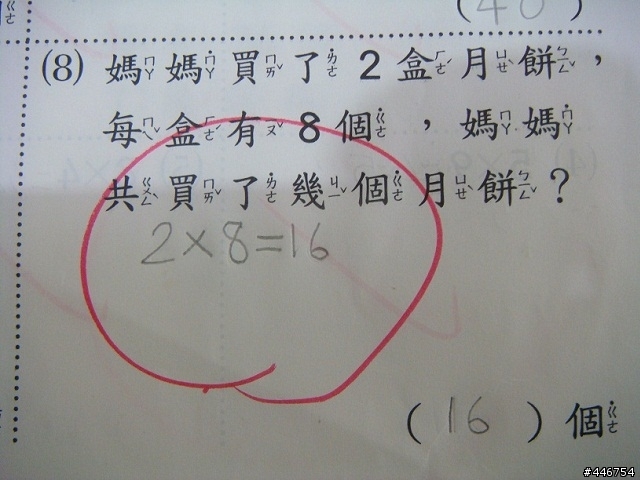 (40)
(8) 媽媽買了2盒月餅，
每盒有8個，媽媽
共買了幾個月餅？
2×8=16
(16)個
#446754